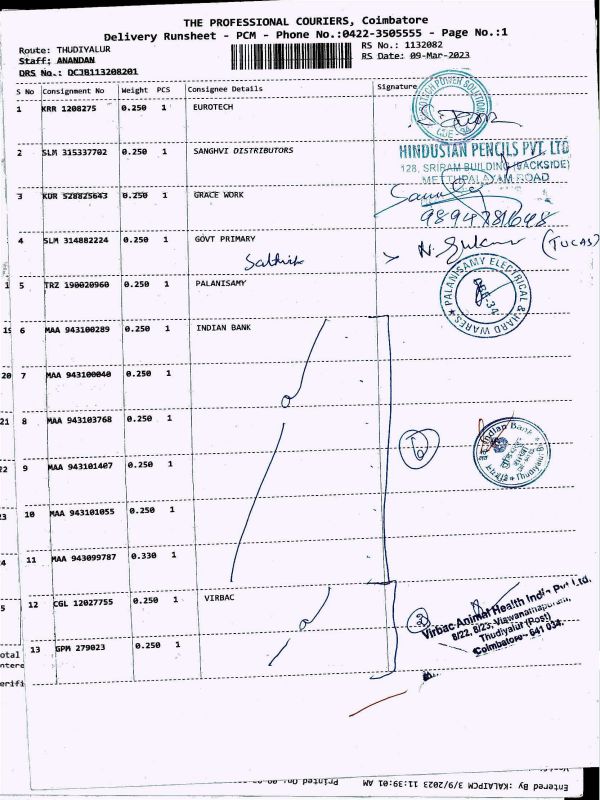 THE PROFESSIONAL COURIERS, Coimbatore
Delivery Runsheet - PCM - Phone No.:0422-3505555 - Page No.:1
Route: THUDIYALUR
RS No.: 1132082
Staff: ANANDAN
RS Date: 09-Mar-2023
DRS No.: DCJB113208201
S No Consignment No Weight PCS Consignee Details Signature
1 KRR 1208275 0.250 1 EUROTECH
2 SLM 315337702 0.250 1 SANGHVI DISTRIBUTORS
HINDUSTAN PENCILS PVT. LTD
128, SRIRAM BUILDING (BACKSIDE)
METTUPALAYAM ROAD
3 KUR 528825643 0.250 1 GRACE WORK
9894781648
4 SLM 314882224 0.250 1 GOVT PRIMARY
(TUCAS)
1 5 TRZ 190020960 0.250 1 PALANISAMY
PALANISAMY ELECTRICAL & HARD WARES
19 6 MAA 943100289 0.250 1 INDIAN BANK
20 7 MAA 943100040 0.250 1
21 8 MAA 943103768 0.250 1
Indian Bank
Thudiyalur
22 9 MAA 943101407 0.250 1
23 10 MAA 943101055 0.250 1
24 11 MAA 943099787 0.330 1
5 12 CGL 12027755 0.250 1 VIRBAC
2
Virbac Animal Health India Pvt. Ltd.
8/22, 8/23, Viswanathapuram,
Thudiyalur (Post)
Coimbatore - 641 034.
13 GPM 279023 0.250 1
otal
ntere
erifi
Entered By: KALAIPCM 3/9/2023 11:39:01 AM Printed On: